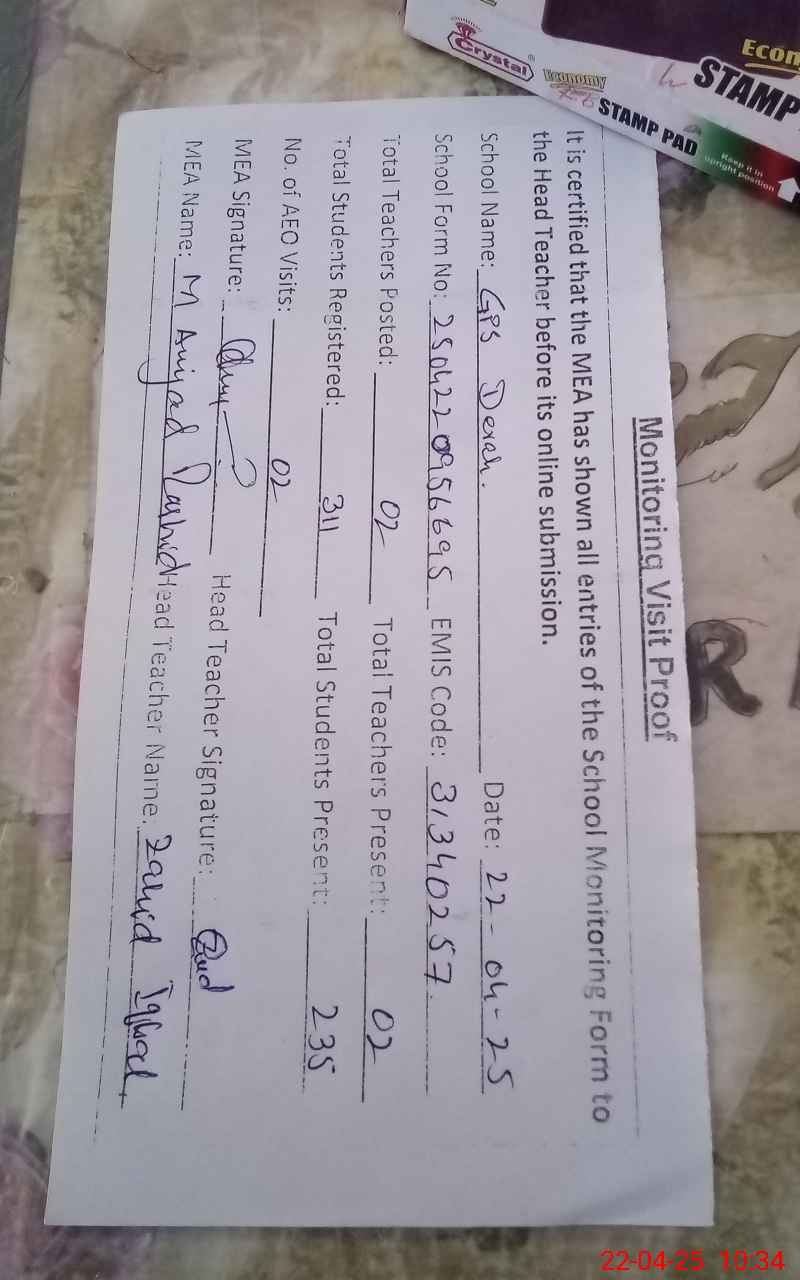 Crystal
Economy
STAMP PAD
Econ
STAMP
Keep it in
upright position
Monitoring Visit Proof
It is certified that the MEA has shown all entries of the School Monitoring Form to
the Head Teacher before its online submission.
School Name: GPS Derah. Date: 22-04-25
School Form No: 2504220956695 EMIS Code: 31340257.
Total Teachers Posted: 02 Total Teachers Present: 02
Total Students Registered: 311 Total Students Present: 235
No. of AEO Visits: 02
MEA Signature: Head Teacher Signature:
MEA Name: M Amjad Rashid Head Teacher Name: Zahid Iqbal
22-04-25 10:34